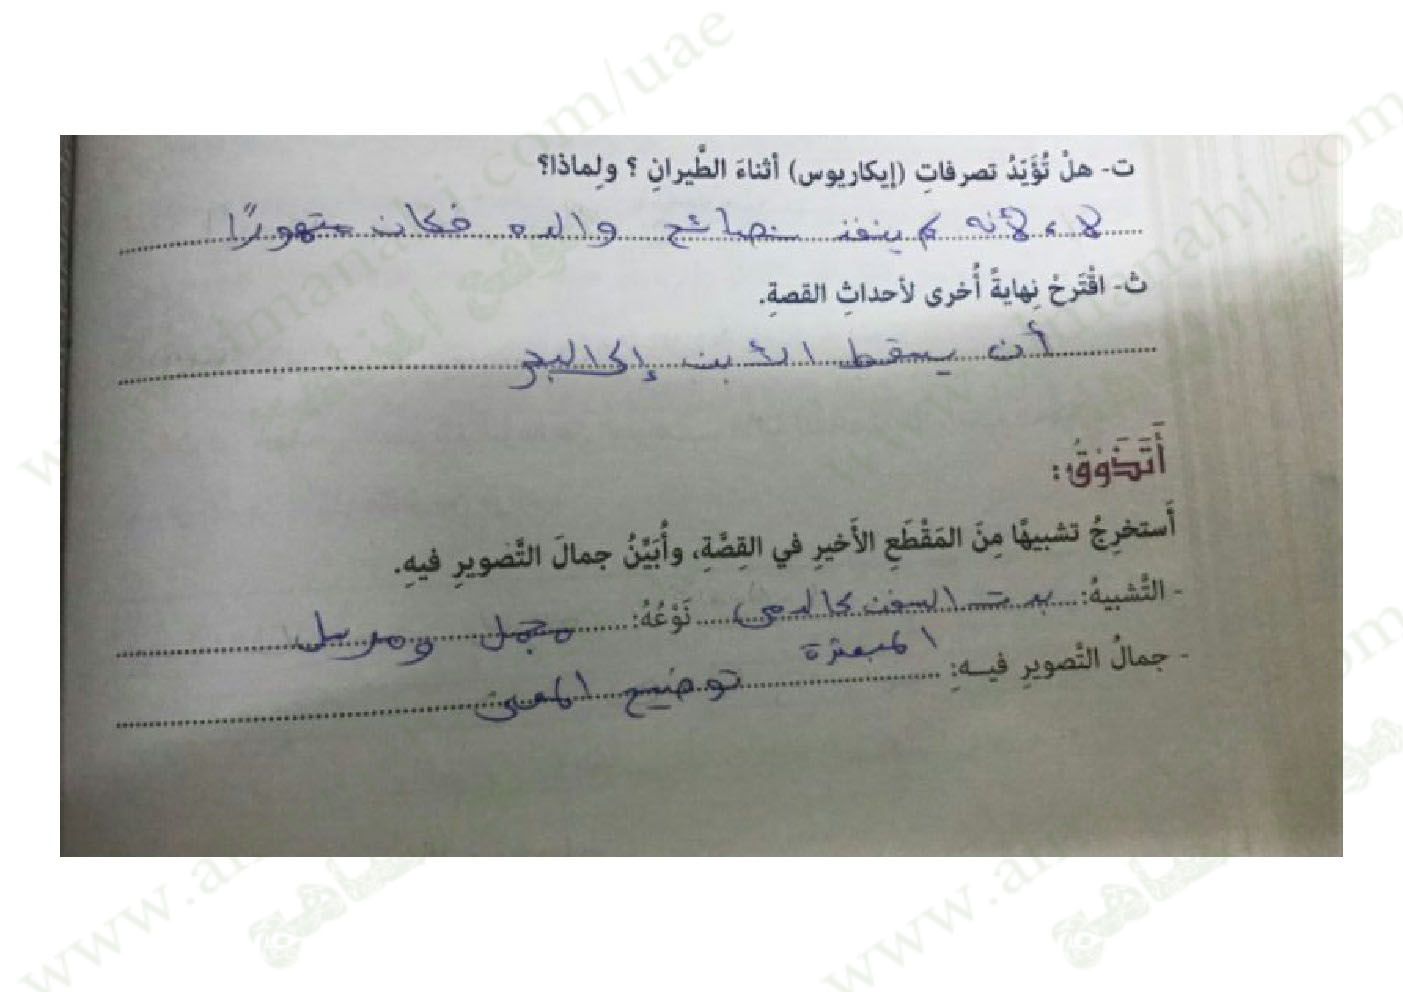 ت- هلْ تُؤَيّدُ تصرفاتِ (إيكاريوس) أثناءَ الطَّيرانِ ؟ ولِماذا؟
لا، لأنه لم ينفذ نصائح والده فكان متهورًا
ث- اقْتَرحْ نِهايةً أُخرى لأحداثِ القصةِ.
أن يسقط الأبن إلى البحر
أَتَذَوَّقُ:
أَستخرِجُ تشبيهًا مِنَ المَقْطَعِ الأَخيرِ في القِصَّةِ، وأُبَيِّنُ جمالَ التَّصويرِ فيهِ.
- التَّشبيهُ: بدت السفن كالدمى نَوْعُهُ: مجمل ومرسل
المبعثرة
- جمالُ التَّصويرِ فيــهِ: توضيح المعنى
www.almanahj.com/uae
موقع المناهج